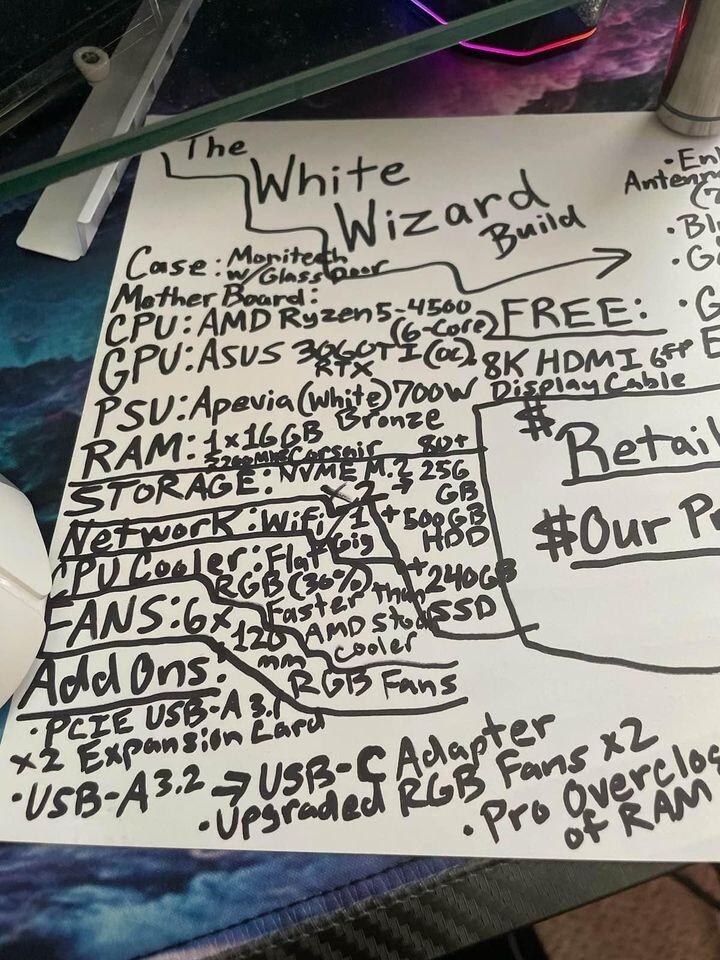 The
White
Wizard
Build
Case: Monitech
w/Glass Door
Mother Board:
CPU: AMD Ryzen 5-4500
(6-Core)
GPU: ASUS 3060TI (OC)
RTX
PSU: Apevia (White) 700W
Bronze
80+
RAM: 1x16GB
Corsair
STORAGE: NVME M.2 256
GB
+500GB
HDD
+240GB
SSD
Network: Wifi/1
Gig
CPU Cooler: Flat
RGB (36%)
Faster than
AMD Stock
Cooler
FANS: 6x
120
mm
RGB Fans
Add Ons:
• PCIE USB-A 3.1
x2 Expansion Card
• USB-A 3.2 → USB-C Adapter
• Upgraded RGB Fans x2
• Pro Overcloc
of RAM
FREE:
8K HDMI 6ft
Display Cable
$
Retail
$Our Pr
• En
Antenn
• Bl
• G
• G
E